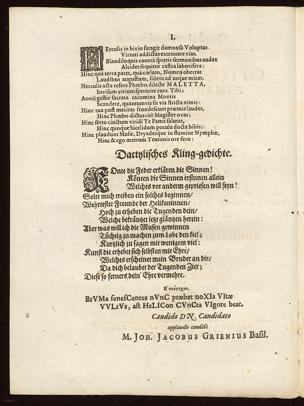 I.
HErculis in bivio ſtrepit damnoſa Voluptas
Virtuti addictas extenuare vias.
Blandiloquis contrà ſpretis ſermonibus audax
Alcides ſequitur caſtra laborifera:
Hinc quà terra patet, quà cœlum, Nomen oberrat
Laudibus auguſtum, ſidera ad usque micat.
Herculis acta refers Phœbo dilecte MALETTA,
Inviſum vitium ſpernere cura Tibi;
Aonii geſtis ſacrata cacumina Montis
Scandere, quantumvis ſit via ſtricta nimis:
Hinc tua poſt meritas frondeſcunt præmia laudes,
Hinc Phœbo dictus sic Magiſter ovas;
Hinc ſerto cinctum viridi Te Fama ſalutat,
Hinc quoque Sicelidum pocula docta bibis:
Hinc plaudunt Muſæ, Dryadesque in flumine Nymphæ,
Hinc & ego metrum Teutonis ore fero:
Dactyliſches Kling-gedichte.
KOnte die Feder erklären die Sinnen!
Können die Sinnen erſinnen allein
Welches vor andern geprieſen will ſeyn!
Solte mich treiben ein ſolches beginnen/
Wehrteſter Freunde der Helikoninnen/
Hoch zu erheben die Tugenden dein/
Welche bekräntzet jetz gläntzen herein:
Aber was will ich die Muſen gewinnen
Tüchtig zu machen zum Lobe den ſiel;
Kürtzlich zu ſagen mit wenigem viel:
Kunſt die erhebet ſich ſelbſten mit Ehre/
Welches erſcheinet mein Bruder an dir/
Da dich belaubet der Tugenden Zier;
Dieſe ſo ferners dein Ehre vermehre.
BrVMa ſeneſCentes nVnC præbet noXIa VItæ
VVLtVs, aſt HeLICon CVnCta VIgore beat.
Candido DN. Candidato
applaudit candidè
M. JOH. JACOBUS GRIENIUS Baſil.